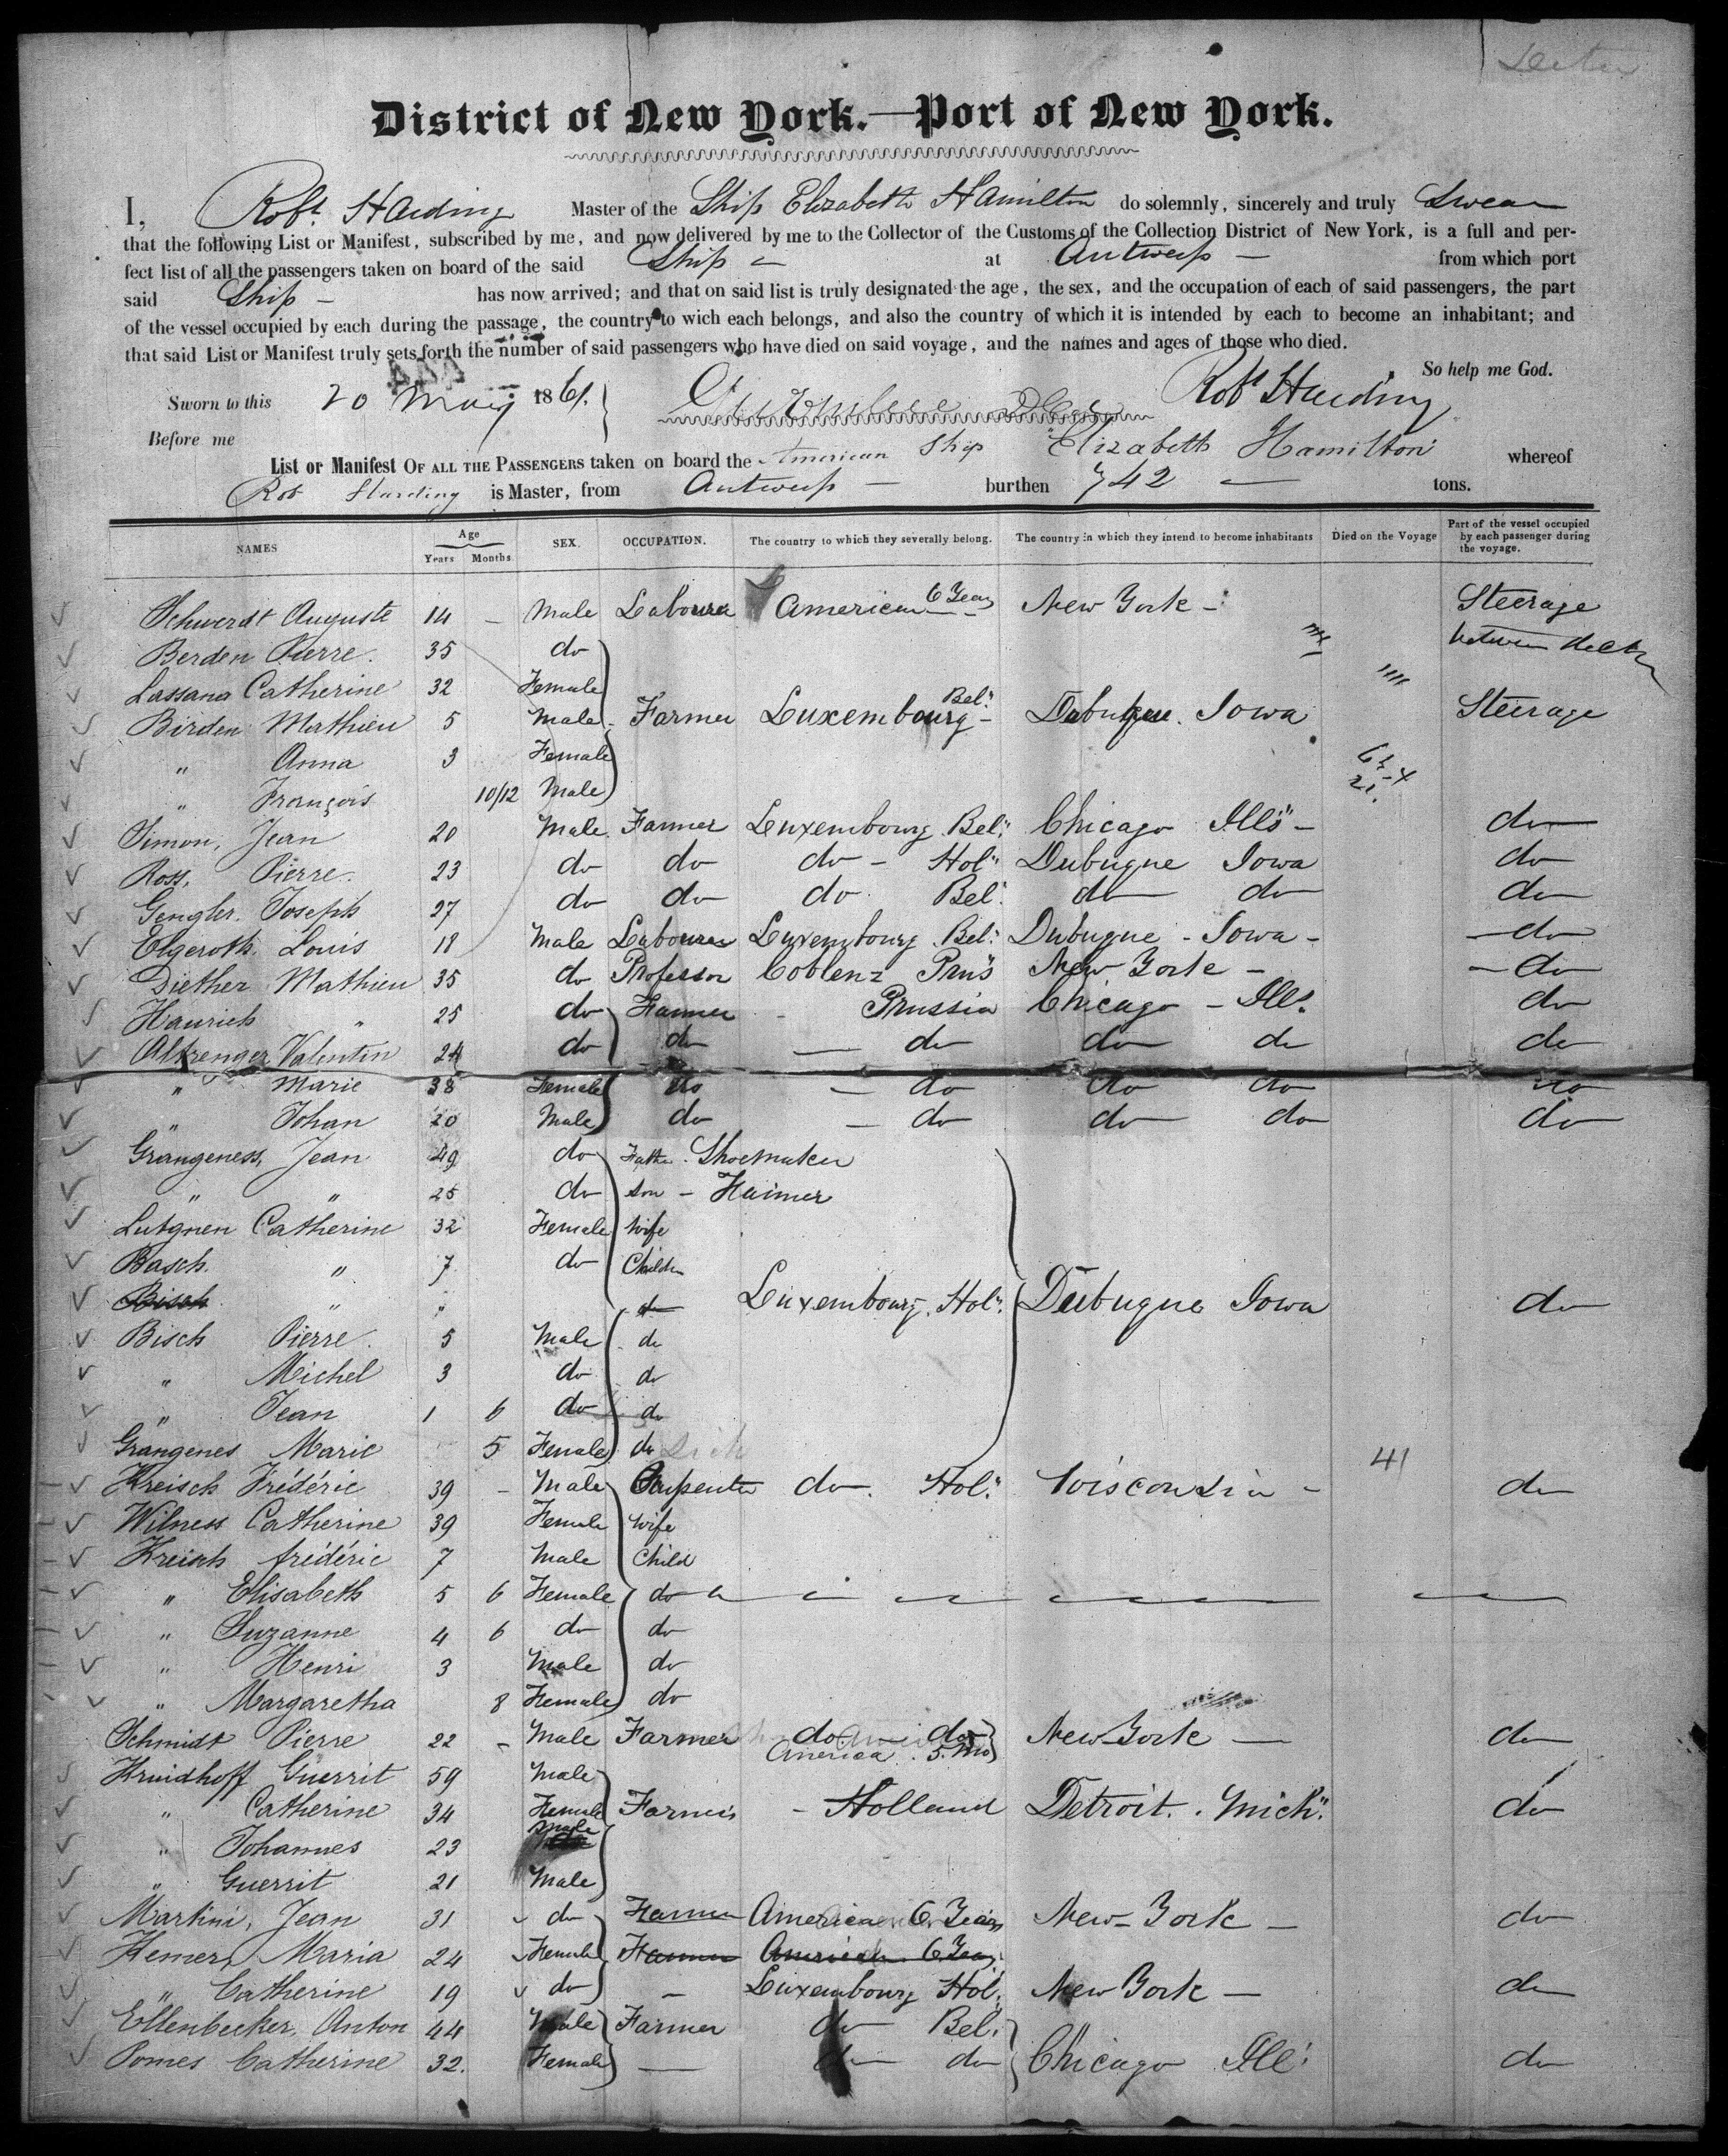 District of New York.—Port of New York.
I, Robt. Harding Master of the Ship Elizabeth Hamilton do solemnly, sincerely and truly Swear
that the following List or Manifest, subscribed by me, and now delivered by me to the Collector of the Customs of the Collection District of New York, is a full and per-
fect list of all the passengers taken on board of the said Ship — at Antwerp — from which port
said Ship — has now arrived; and that on said list is truly designated the age, the sex, and the occupation of each of said passengers, the part
of the vessel occupied by each during the passage, the country to wich each belongs, and also the country of which it is intended by each to become an inhabitant; and
that said List or Manifest truly sets forth the number of said passengers who have died on said voyage, and the names and ages of those who died.
So help me God.
Sworn to this 20 May 1861. Robt Harding
Before me
List or Manifest OF ALL THE PASSENGERS taken on board the American Ship Elizabeth Hamilton whereof
Rob Harding is Master, from Antwerp — burthen 742 — tons.
NAMES Age Years Months SEX. OCCUPATION. The country to which they severally belong. The country in which they intend to become inhabitants Died on the Voyage Part of the vessel occupied by each passenger during the voyage.
Schwerdt Auguste 14 — Male Labourer American 6 Years New York — Steerage
Berden Pierre. 35 do between deck
Lassana Catherine 32 Female
Birden Mathieu 5 Male Farmer Luxembourg Bel: Dubuque. Iowa Steerage
" Anna 3 Female
" François 10/12 Male
Simon, Jean 20 Male Farmer Luxembourg Bel: Chicago Ills — do
Ross, Pierre. 23 do do do — Hol: Dubuque Iowa do
Gengler. Joseph 27 do do do Bel: do do do
Elgeroth. Louis 18 Male Labourer Luxembourg Bel: Dubuque — Iowa — do
Diether Mathieu 35 do Professor Coblenz Prus New York — do
Haurich " 25 do Farmer Prussia Chicago — Ill: do
Altzenger Valentin 24 do do — do do do do
" Marie 38 Female do — do do do do
" Johan 20 Male do — do do do do
Grangeness, Jean 49 do Father. Shoemaker
" " 25 do son — Farmer
Lutgnen Catherine 32 Female Wife
Basch. " 7 do Children
Bisch " " do Luxembourg. Hol: Dubuque Iowa do
Bisch Pierre. 5 Male do
" Michel 3 do do
" Jean 1 6 do do
Grangenes Marie 5 Female do 41
Kreisch Frédéric 39 — Male Carpenter do. Hol: Wisconsin — do
Wilness Catherine 39 Female Wife
Kreisch frédéric 7 Male Child
" Elisabeth 5 6 Female do
" Suzanne 4 6 do do
" Henri 3 Male do
" Margaretha 8 Female do
Schmidt Pierre 22 — Male Farmer do do New York — do
America. 5. Mo
Kruidhoff Guerrit 59 Male
" Catherine 34 Female Farmers — Holland Detroit. Mich: do
" Johannes 23 Male
" Guerrit 21 Male
Martini, Jean 31 do Farmer American 6 Years New-York — do
Hemer, Maria 24 Female Farmer American 6 Years
" Catherine 19 do — Luxembourg Hol: New York — do
Ellenbecker, Anton 44 Male Farmer do Bel:
Pomes Catherine 32. Female — do do Chicago Ill: do